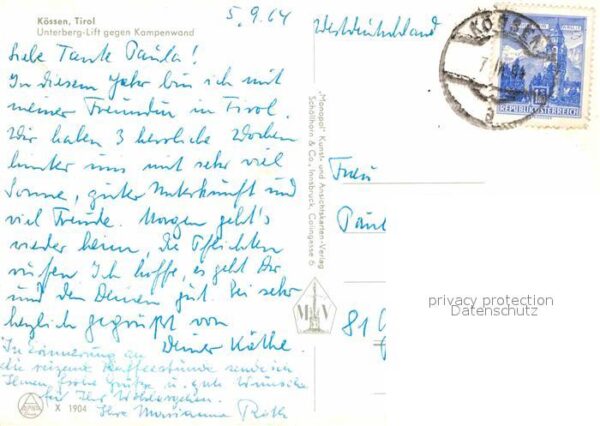 Kössen, Tirol
Unterberg-Lift gegen Kampenwand
5.9.64
Liebe Tante Paula!
In diesem Jahr bin ich mit
meiner Freundin in Tirol.
Wir haben 3 herrliche Wochen
hinter uns mit sehr viel
Sonne, guter Unterkunft und
viel Freude. Morgen geht's
wieder heim, die Pflichten
rufen. Ich hoffe, es geht Dir
und den Deinen gut. Sei sehr
herzlich gegrüßt von
Deiner Käthe.
In Erinnerung an
die reizende Kaffeestunde sende ich
Ihnen frohe Grüße u. gute Wünsche
für Ihr Wohlergehen.
Ihre Marianne Roth
X 1904
"Monopol" Kunst- und Ansichtskarten-Verlag
Schöllhorn & Co., Innsbruck, Colingasse 6
Westdeutschland
KÖSSEN
REPUBLIK ÖSTERREICH
Frau
Paul
81
privacy protection
Datenschutz